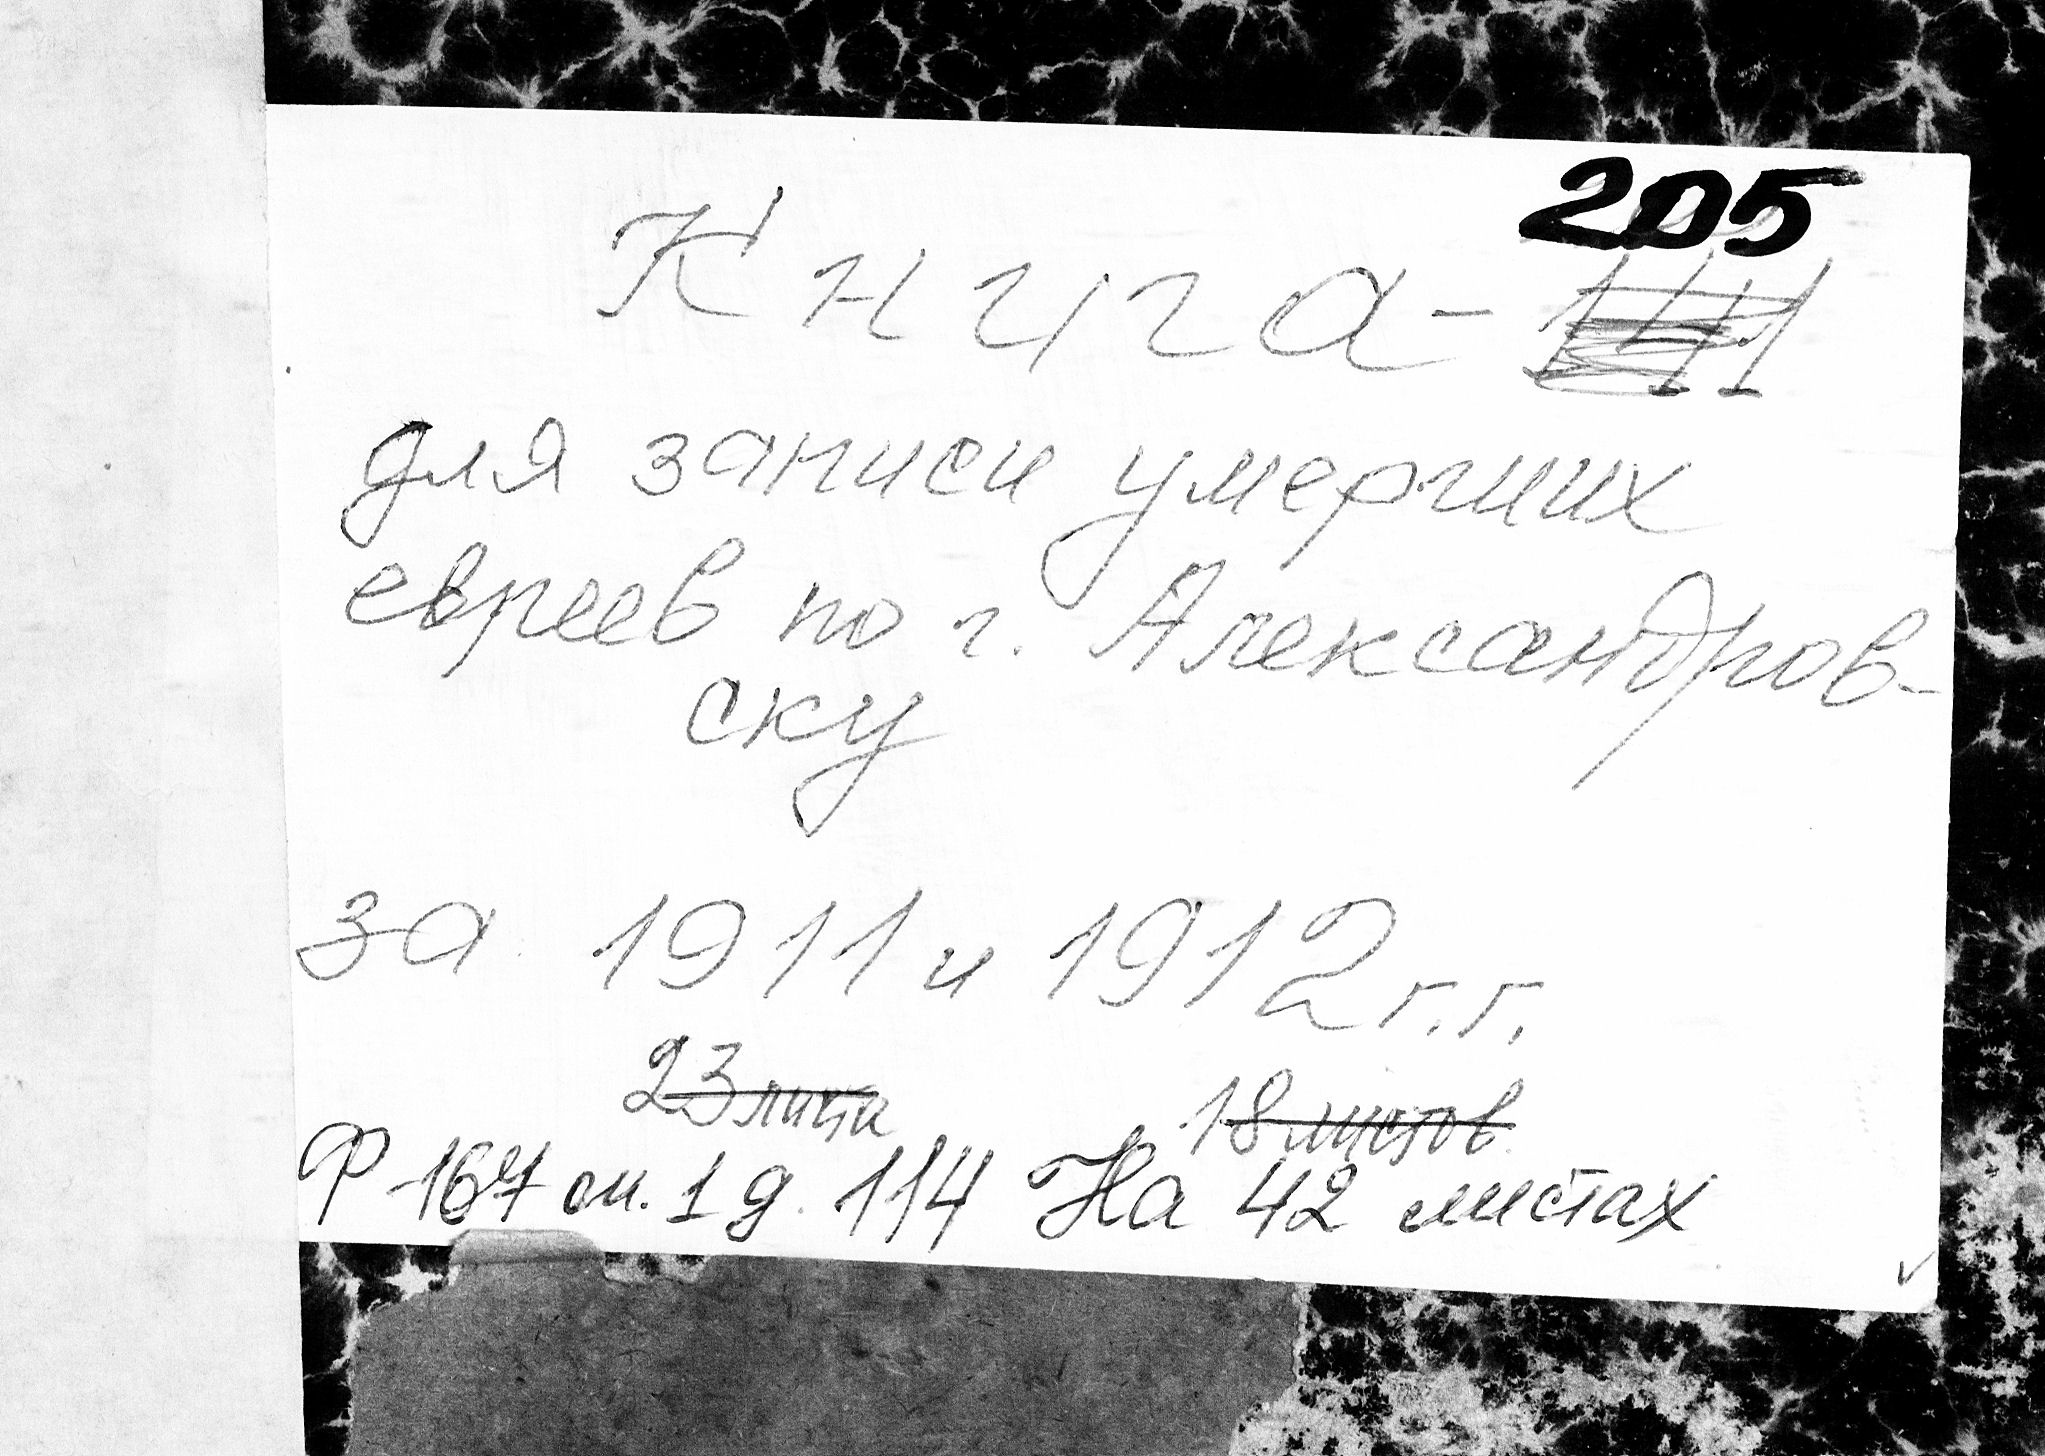 205
Книга -
для записи умерших
евреев по г. Александров-
ску
за 1911 и 1912 г.г.
23 листа 18 листов
Ф 167 оп. 1 д. 114 На 42 листах